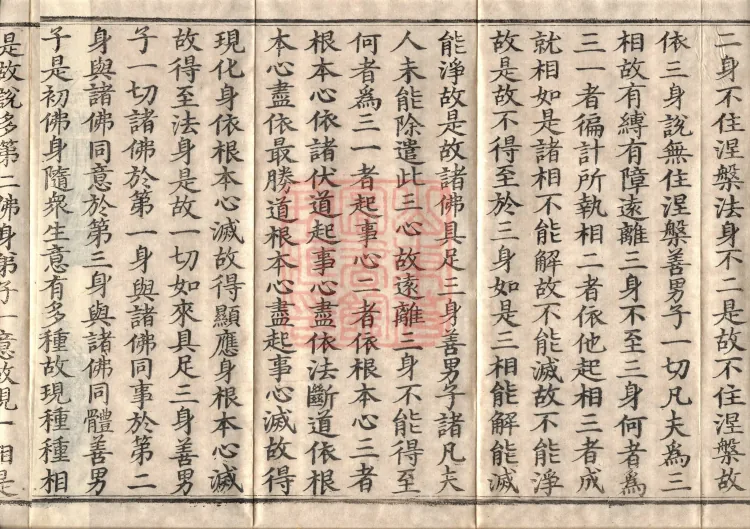 二身不住涅槃法身不二是故不住涅槃故
依三身說無住涅槃善男子一切凡夫為三
相故有縛有障遠離三身不至三身何者為
三一者徧計所執相二者依他起相三者成
就相如是諸相不能解故不能滅故不能淨
故是故不得至於三身如是三相能解能滅
能淨故是故諸佛具足三身善男子諸凡夫
人未能除遣此三心故遠離三身不能得至
何者為三一者起事心二者依根本心三者
根本心依諸伏道起事心盡依法斷道依根
本心盡依最勝道根本心盡起事心滅故得
現化身依根本心滅故得顯應身根本心滅
故得至法身是故一切如來具足三身善男
子一切諸佛於第一身與諸佛同事於第二
身與諸佛同意於第三身與諸佛同體善男
子是初佛身隨眾生意有多種故現種種相
是故說多第二佛身弟子一意故現一相是